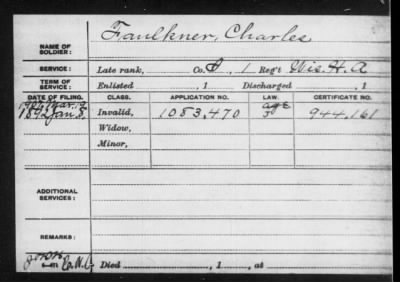 NAME OF SOLDIER: Faulkner, Charles
SERVICE: Late rank, Co. , 1 Reg't Wis. H. A
TERM OF SERVICE: Enlisted , 1 Discharged , 1
DATE OF FILING. CLASS. APPLICATION NO. LAW. CERTIFICATE NO.
age
1892 Jan. 8 Invalid, 1083,470 944,161
Widow,
Minor,
ADDITIONAL SERVICES:
REMARKS:
Died , 1 , at